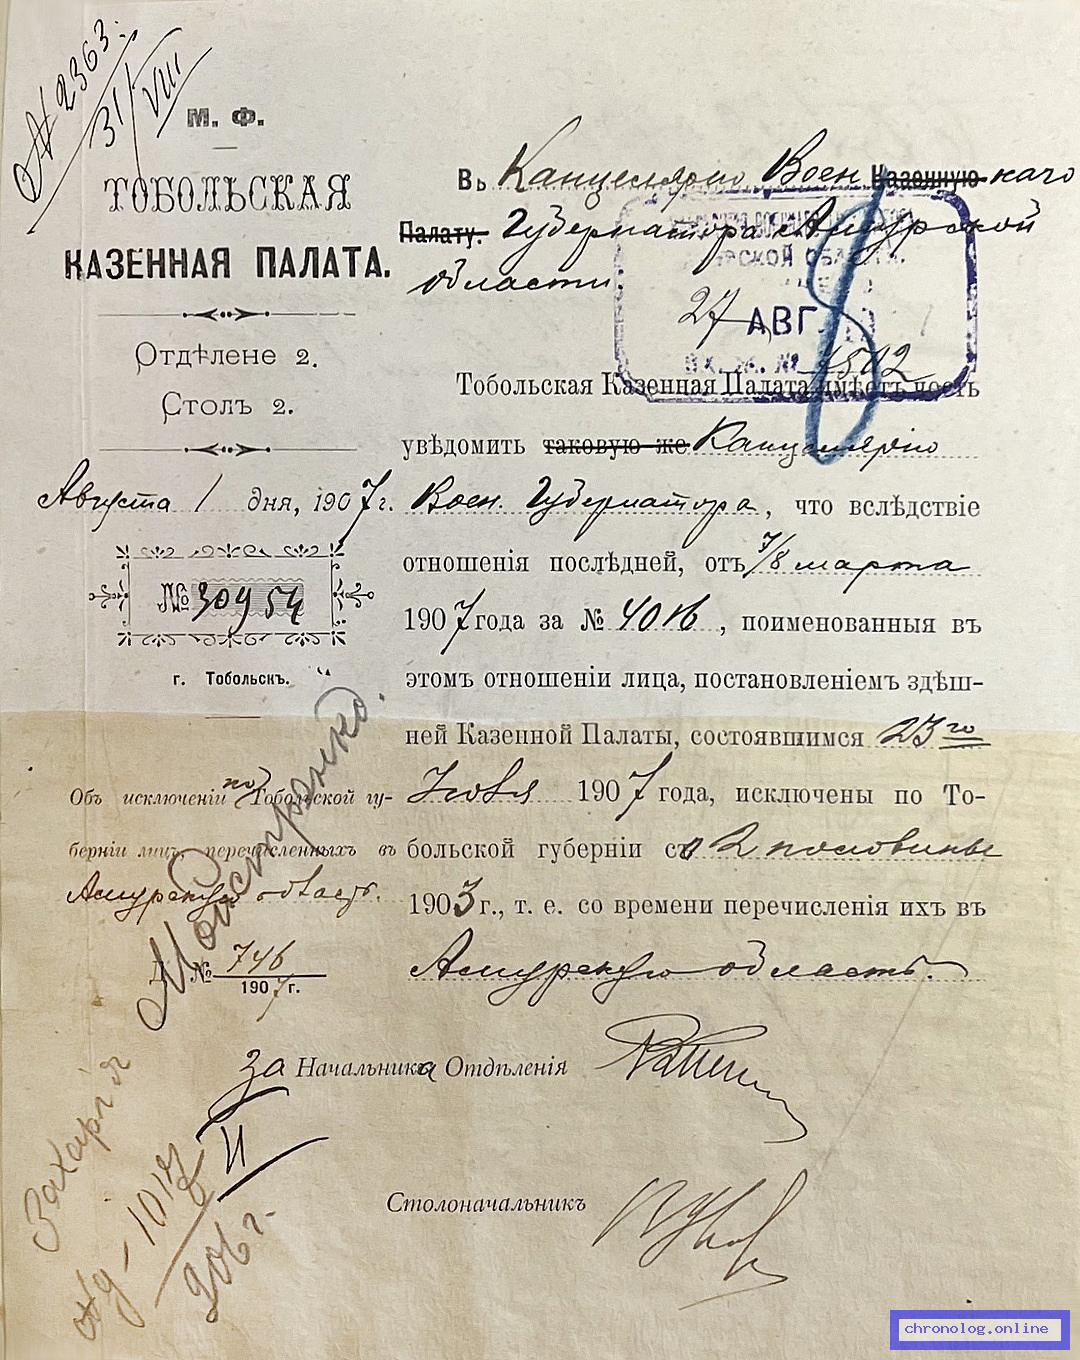 № 2363.
31/VIII
М. Ф.
ТОБОЛЬСКАЯ
КАЗЕННАЯ ПАЛАТА.
Отдѣлене 2.
Столъ 2.
Августа 1 дня, 1907 г.
№ 30954
г. Тобольскъ.
Объ исключеніи по Тобольской гу-
берніи лицъ, перечисленныхъ въ
Амурскую область.
№ 746
1907 г.
Въ Канцелярію Воен Казенную наго
Палату. Губернатора Амурской
области.
27 АВГ
ВХ. № 1502
Тобольская Казенная Палата имѣетъ честь
увѣдомить таковую же Канцелярію
Воен. Губернатора, что вслѣдствіе
отношенія послѣдней, отъ 7/8 марта
1907 года за № 4016, поименованныя въ
этомъ отношеніи лица, постановленіемъ здѣш-
ней Казенной Палаты, состоявшимся 23го
Іюля 1907 года, исключены по То-
больской губерніи со 2 половины
1903 г., т. е. со времени перечисленія ихъ въ
Амурскую область.
За Начальника Отдѣленія
Столоначальникъ
Мойстренко.
Захарія
1017
906 г.
II
8
chronolog.online